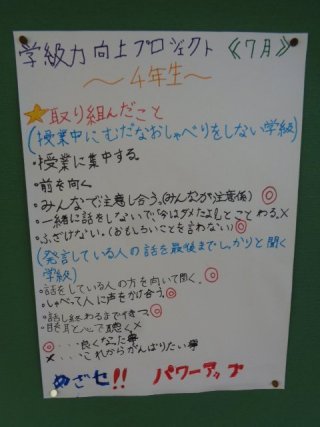 学級力向上プロジェクト《7月》
〜4年生〜
★取り組んだこと
(授業中にむだなおしゃべりをしない学級)
・授業に集中する。
・前を向く。
・みんなで注意し合う。(みんなが注意係) ◎
・一緒に話をしないで「今はダメだよ」とことわる。×
・ふざけない。(おもしろいことを言わない) ◎
(発言している人の話を最後までしっかりと聞く
学級)
・話をしている人の方を向いて聞く。◎
・しゃべって人に声をかけ合う。◎
・話し終わるまで待つ。◎
・目と耳と心で聴く×
◎・・・良くなった事
×・・・これからがんばりたい事
めざせ!! パワーアップ